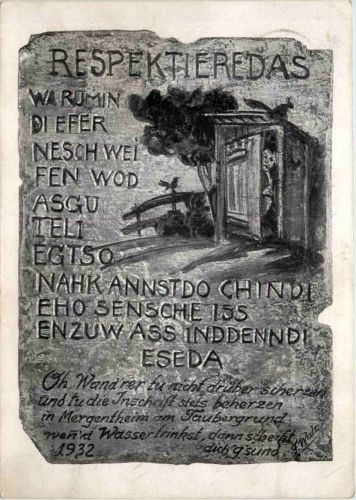 RESPEKTIEREDAS
WARUMIN
DIEFER
NESCHWEI
FENWOD
ASGU
TELI
EGTSO
NAHKANNSTDOCHINDI
EHOSENSCHEISS
ENZUWASSINDDENNDI
ESEDA
Oh, Wand'rer tu nicht drüber scherzen
und tu die Inschrift stets beherzen
in Mergentheim am Taubergrund-
wen'd Wasser trinkst, dann scheißt
1932 dich g'sund